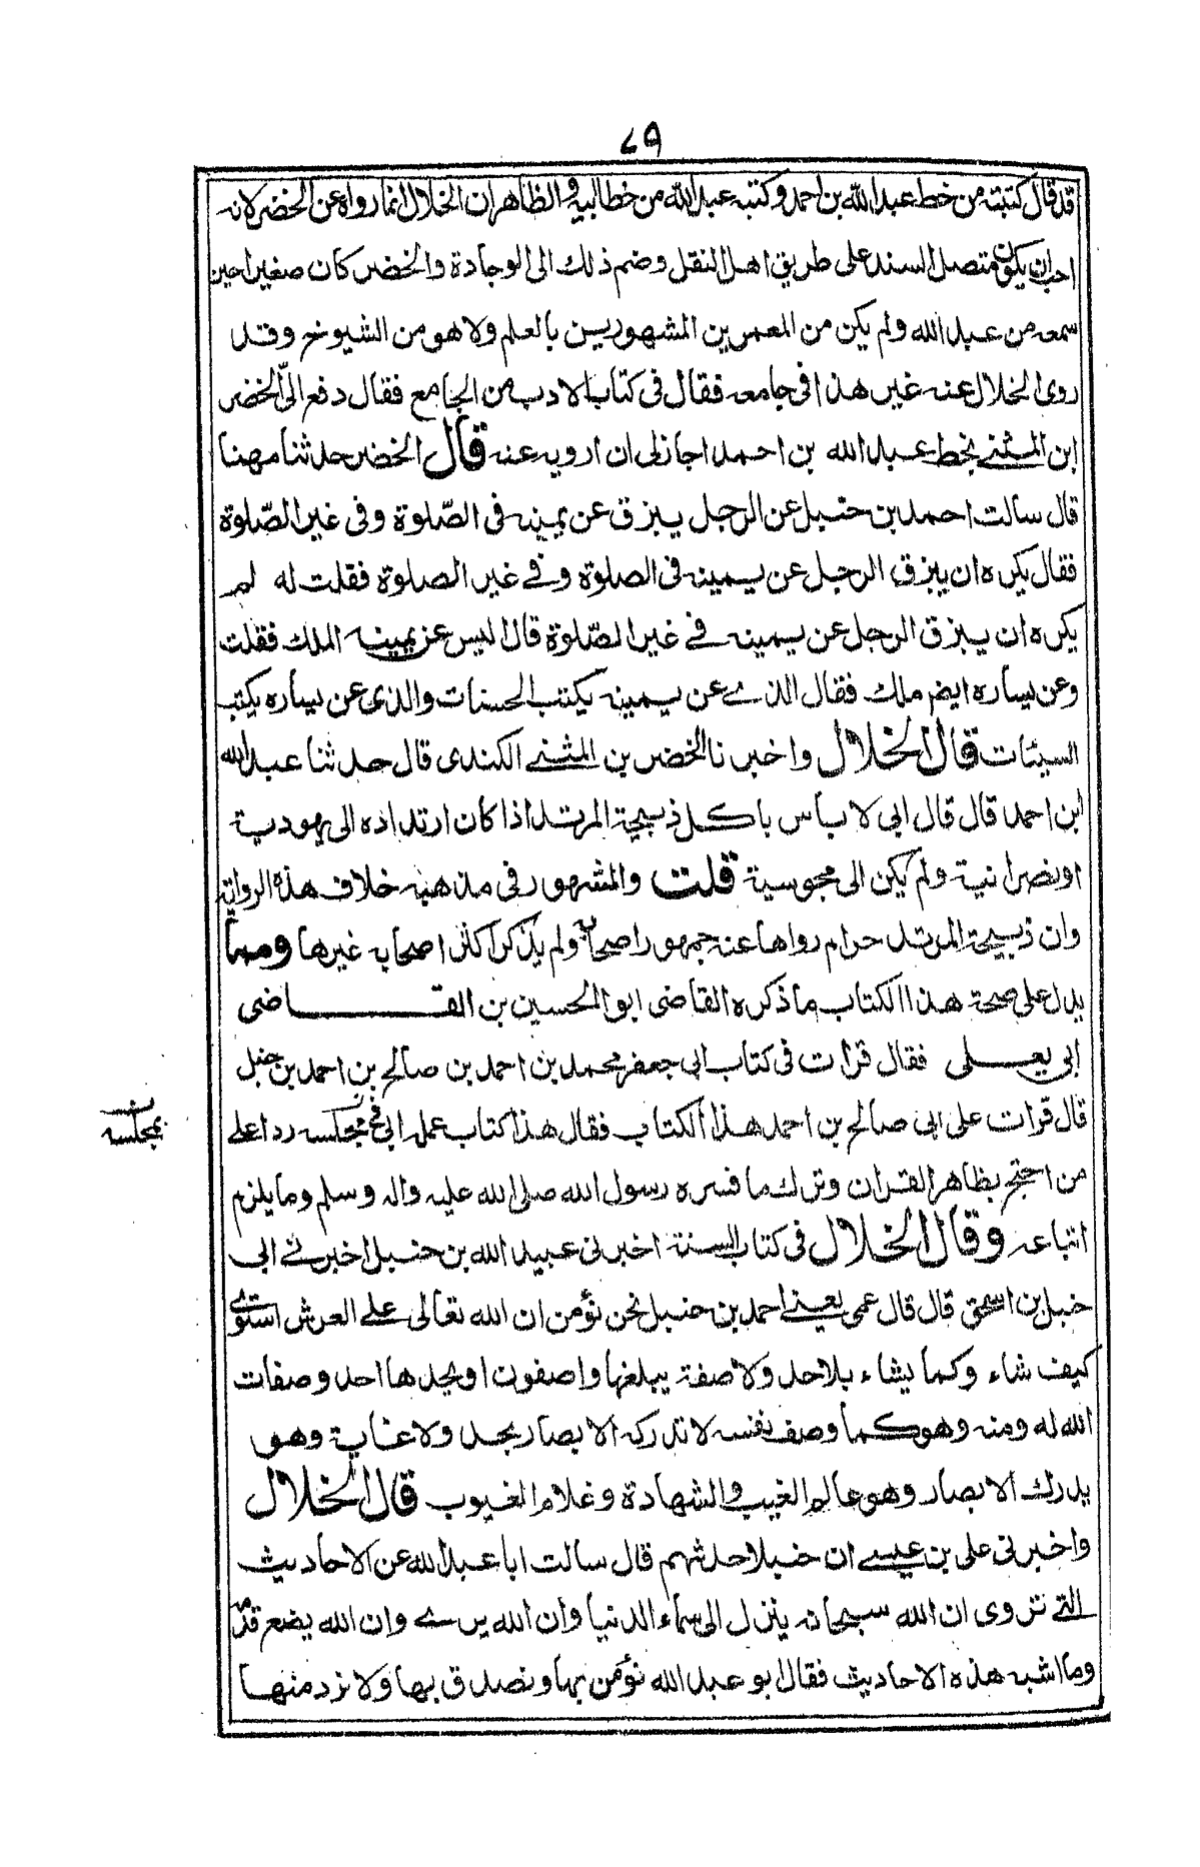 ٧٩
قد قال كتبته من خط عبد الله بن احمد وكتبه عبد الله من خط ابيه والظاهر ان الخلال انما رواه عن الخضر لانه
احب ان يكون متصل السند على طريق اهل النقل وضم ذلك الى الوجادة والخضر كان صغيرا حين
سمعه من عبد الله ولم يكن من المعمرين المشهورين بالعلم ولا هو من الشيوخ وقد
روى الخلال عنه غير هذا فى جامعه فقال فى كتاب الادب من الجامع فقال دفع الىّ الخضر
ابن المثنے بخط عبد الله بن احمد اجاز لى ان ارويه عنه قال الخضر حدثنا مهنا
قال سالت احمد بن حنبل عن الرجل يبزق عن يمينه فى الصّلوة وفى غير الصّلوة
فقال يكره ان يبزق الرجل عن يمينه فى الصلوة وفے غير الصلوة فقلت له لم
يكره ان يبزق الرجل عن يمينه فے غير الصّلوة قال اليس عن يمينه الملك فقلت
وعن يساره ايضم ملك فقال الذے عن يمينه يكتب الحسنات والذى عن يساره يكتب
السيئات قال الخلال واخبرنا الخضر بن المثنے الكندى قال حدثنا عبد الله
ابن احمد قال قال ابى لا باس باكل ذبيحة المرتد اذا كان ارتداده الى يهودية
او نصرانية ولم يكن الى مجوسية قلت والمشهور فى مذهبه خلاف هذه الرواية
وان ذبيحة المرتد حرام رواها عنه جمهور اصحابه ولم يذكر اكثر اصحابه غيرها ومما
يدل على صحة هذا الكتاب ما ذكره القاضى ابو الحسين بن القاضى
ابى يعلى فقال قرات فى كتاب ابى جعفر محمد بن احمد بن صالح بن احمد بن حنبل
قال قرات على ابى صالح بن احمد هذا الكتاب فقال هذا كتاب عمله ابى فى مجلسه ردا علے
بمجلسه
من احتج بظاهر القران وترك ما فسره رسول الله صلى الله عليه واله وسلم وما يلزم
اتباعه وقال الخلال فى كتاب السنة اخبرنى عبيد الله بن حنبل اخبرنے ابى
حنبل بن اسحق قال قال عمى يعنے احمد بن حنبل نحن نؤمن ان الله تعالى علے العرش استوى
كيف شاء وكما يشاء بلا حد ولا صفة يبلغها واصفون او يحدها احد وصفات
الله له ومنه وهو كما وصف نفسه لا تدركه الابصار بحد ولا غاية وهو
يدرك الابصار وهو عالم الغيب والشهادة وعلام الغيوب قال الخلال
واخبرنى على بن عيسے ان حنبلا حدثهم قال سالت ابا عبد الله عن الاحاديث
التے تروى ان الله سبحانه ينزل الى سماء الدنيا وان الله يرے وان الله يضع قدمه
وما اشبه هذه الاحاديث فقال ابو عبد الله نؤمن بها ونصدق بها ولا نرد منها